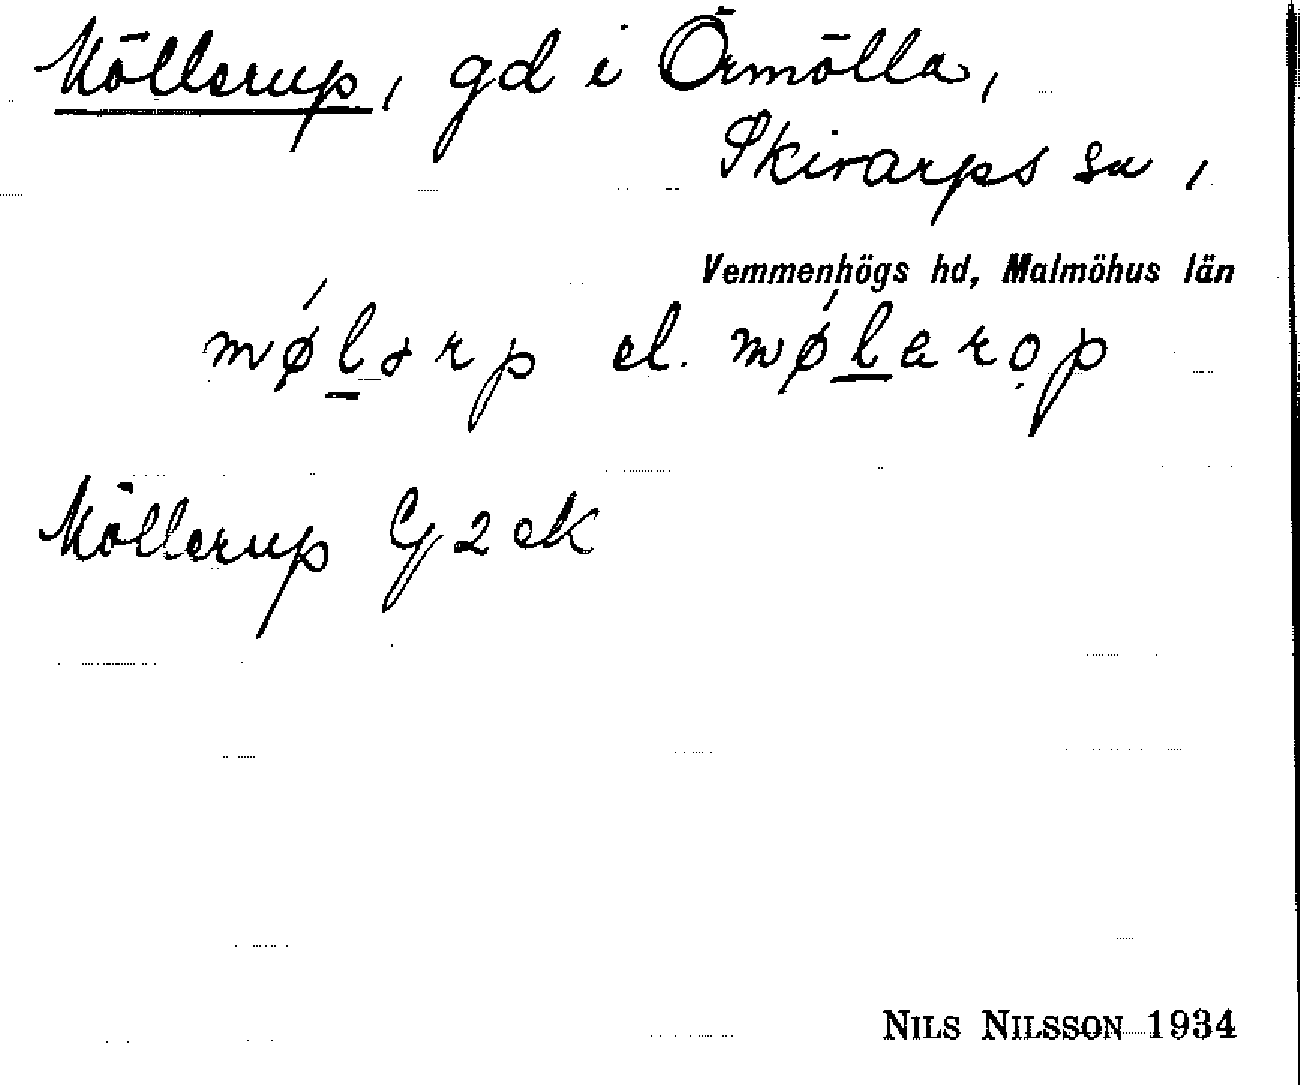 Möllerup, gd i Örmölla,
Skivarps sn,
Vemmenhögs hd, Malmöhus län
mǿl̲ərp el. mǿl̲arọp
Möllerup G 2 ek
NILS NILSSON 1934